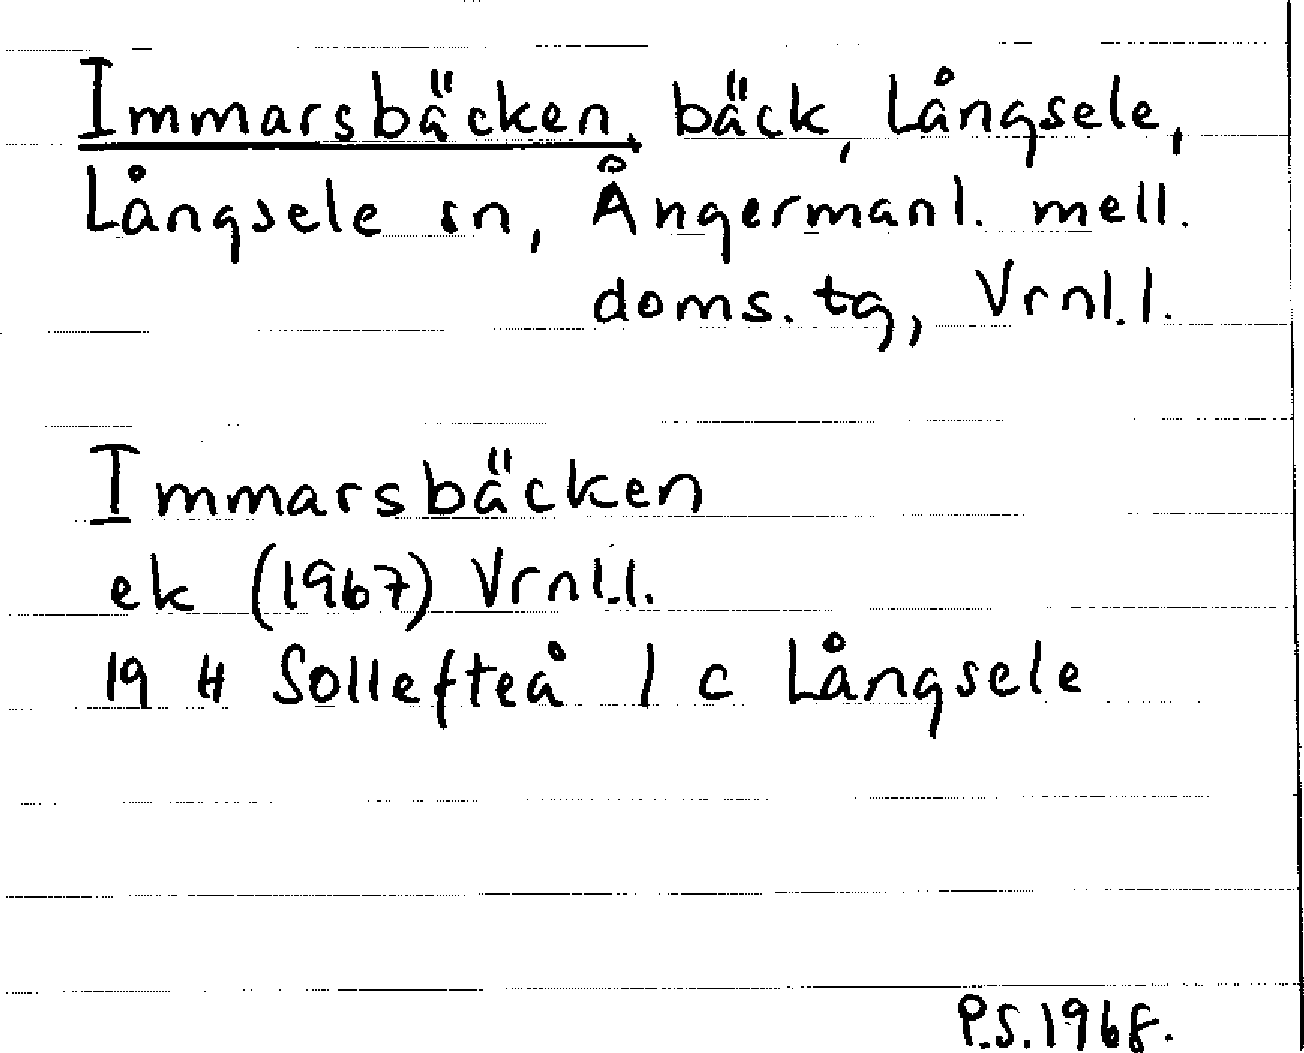 Immarsbäcken, bäck, Långsele,
Långsele sn, Ångermanl. mell.
doms. tg, Vrnl.l.
Immarsbäcken
ek (1967) Vrnl.l.
19 H Sollefteå 1 c Långsele
P.S.1968.